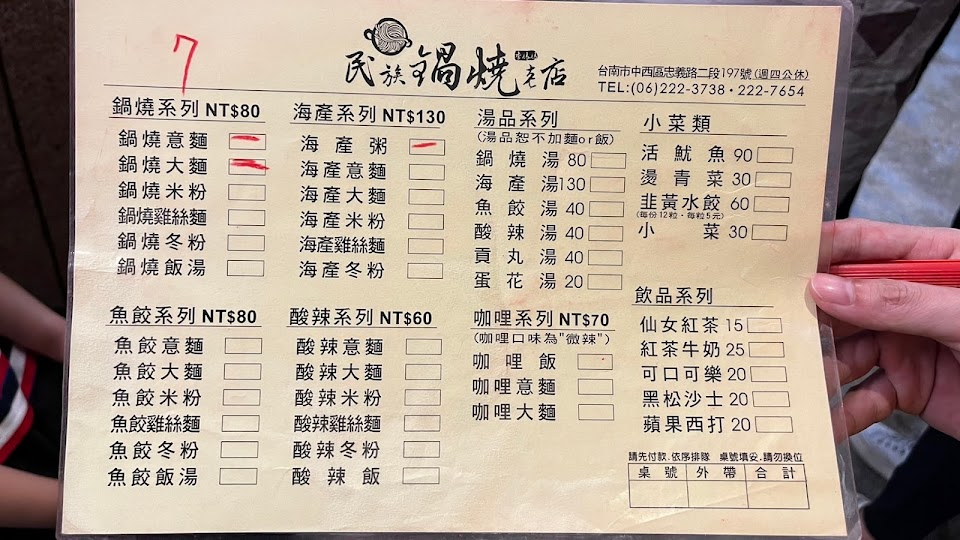 7
民族鍋燒老店
台南市中西區忠義路二段197號(週四公休)
TEL:(06)222-3738・222-7654
鍋燒系列 NT$80
鍋燒意麵
鍋燒大麵
鍋燒米粉
鍋燒雞絲麵
鍋燒冬粉
鍋燒飯湯
海產系列 NT$130
海產粥
海產意麵
海產大麵
海產米粉
海產雞絲麵
海產冬粉
湯品系列
(湯品恕不加麵or飯)
鍋燒湯 80
海產湯 130
魚餃湯 40
酸辣湯 40
貢丸湯 40
蛋花湯 20
小菜類
活魷魚 90
燙青菜 30
韭黃水餃 60
(每份12粒・每粒5元)
小菜 30
魚餃系列 NT$80
魚餃意麵
魚餃大麵
魚餃米粉
魚餃雞絲麵
魚餃冬粉
魚餃飯湯
酸辣系列 NT$60
酸辣意麵
酸辣大麵
酸辣米粉
酸辣雞絲麵
酸辣冬粉
酸辣飯
咖哩系列 NT$70
(咖哩口味為"微辣")
咖哩飯
咖哩意麵
咖哩大麵
飲品系列
仙女紅茶 15
紅茶牛奶 25
可口可樂 20
黑松沙士 20
蘋果西打 20
請先付款.依序排隊 桌號填妥.請勿換位
桌號 外帶 合計